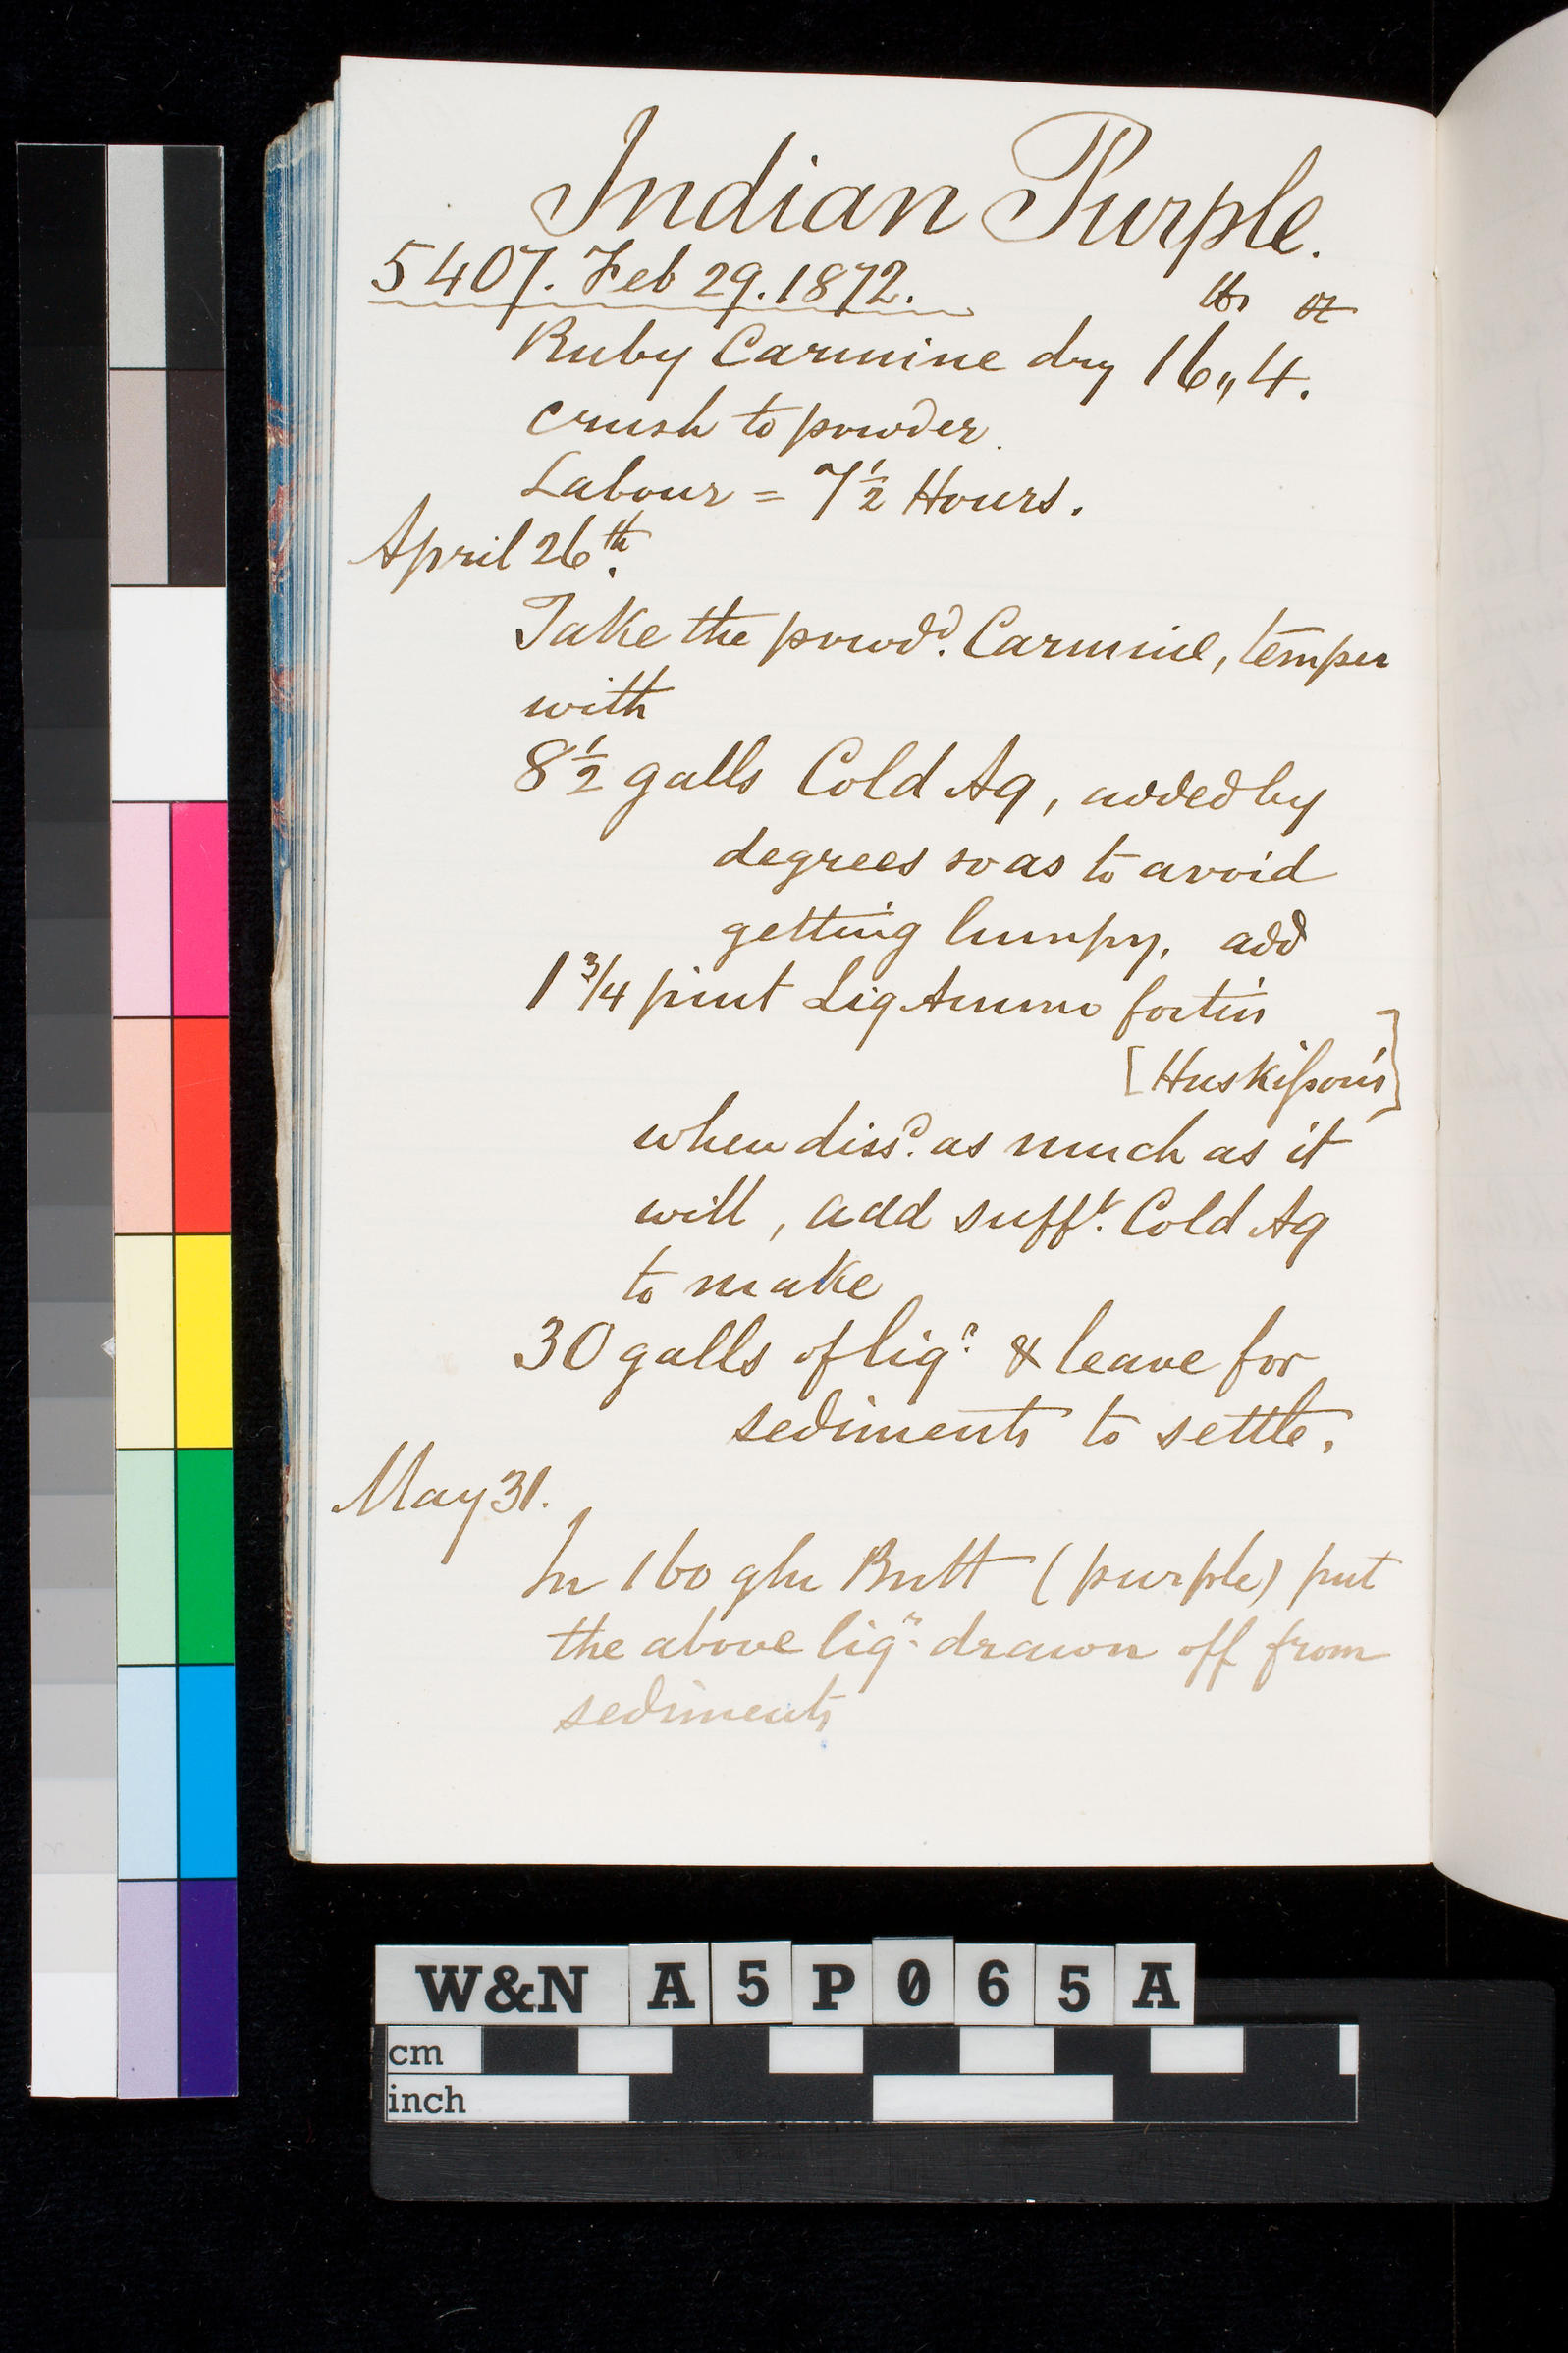 Indian Purple.
5407. Feb 29. 1872.
lbs oz
Ruby Carmine dry 16,,4.
crush to powder.
Labour = 7½ Hours.
April 26th.
Take the powdd. Carmine, temper
with
8½ galls Cold Aq, added by
degrees so as to avoid
getting lumpy, add
1¾ pint Liq Ammo fortis
[Huskisson's]
when dissd. as much as it
will, add sufft. Cold Aq
to make
30 galls of liqr. & leave for
sediments to settle.
May 31.
In 160 gln Butt (purple) put
the above liqr. drawn off from
sediments
W&N A5P065A
cm
inch